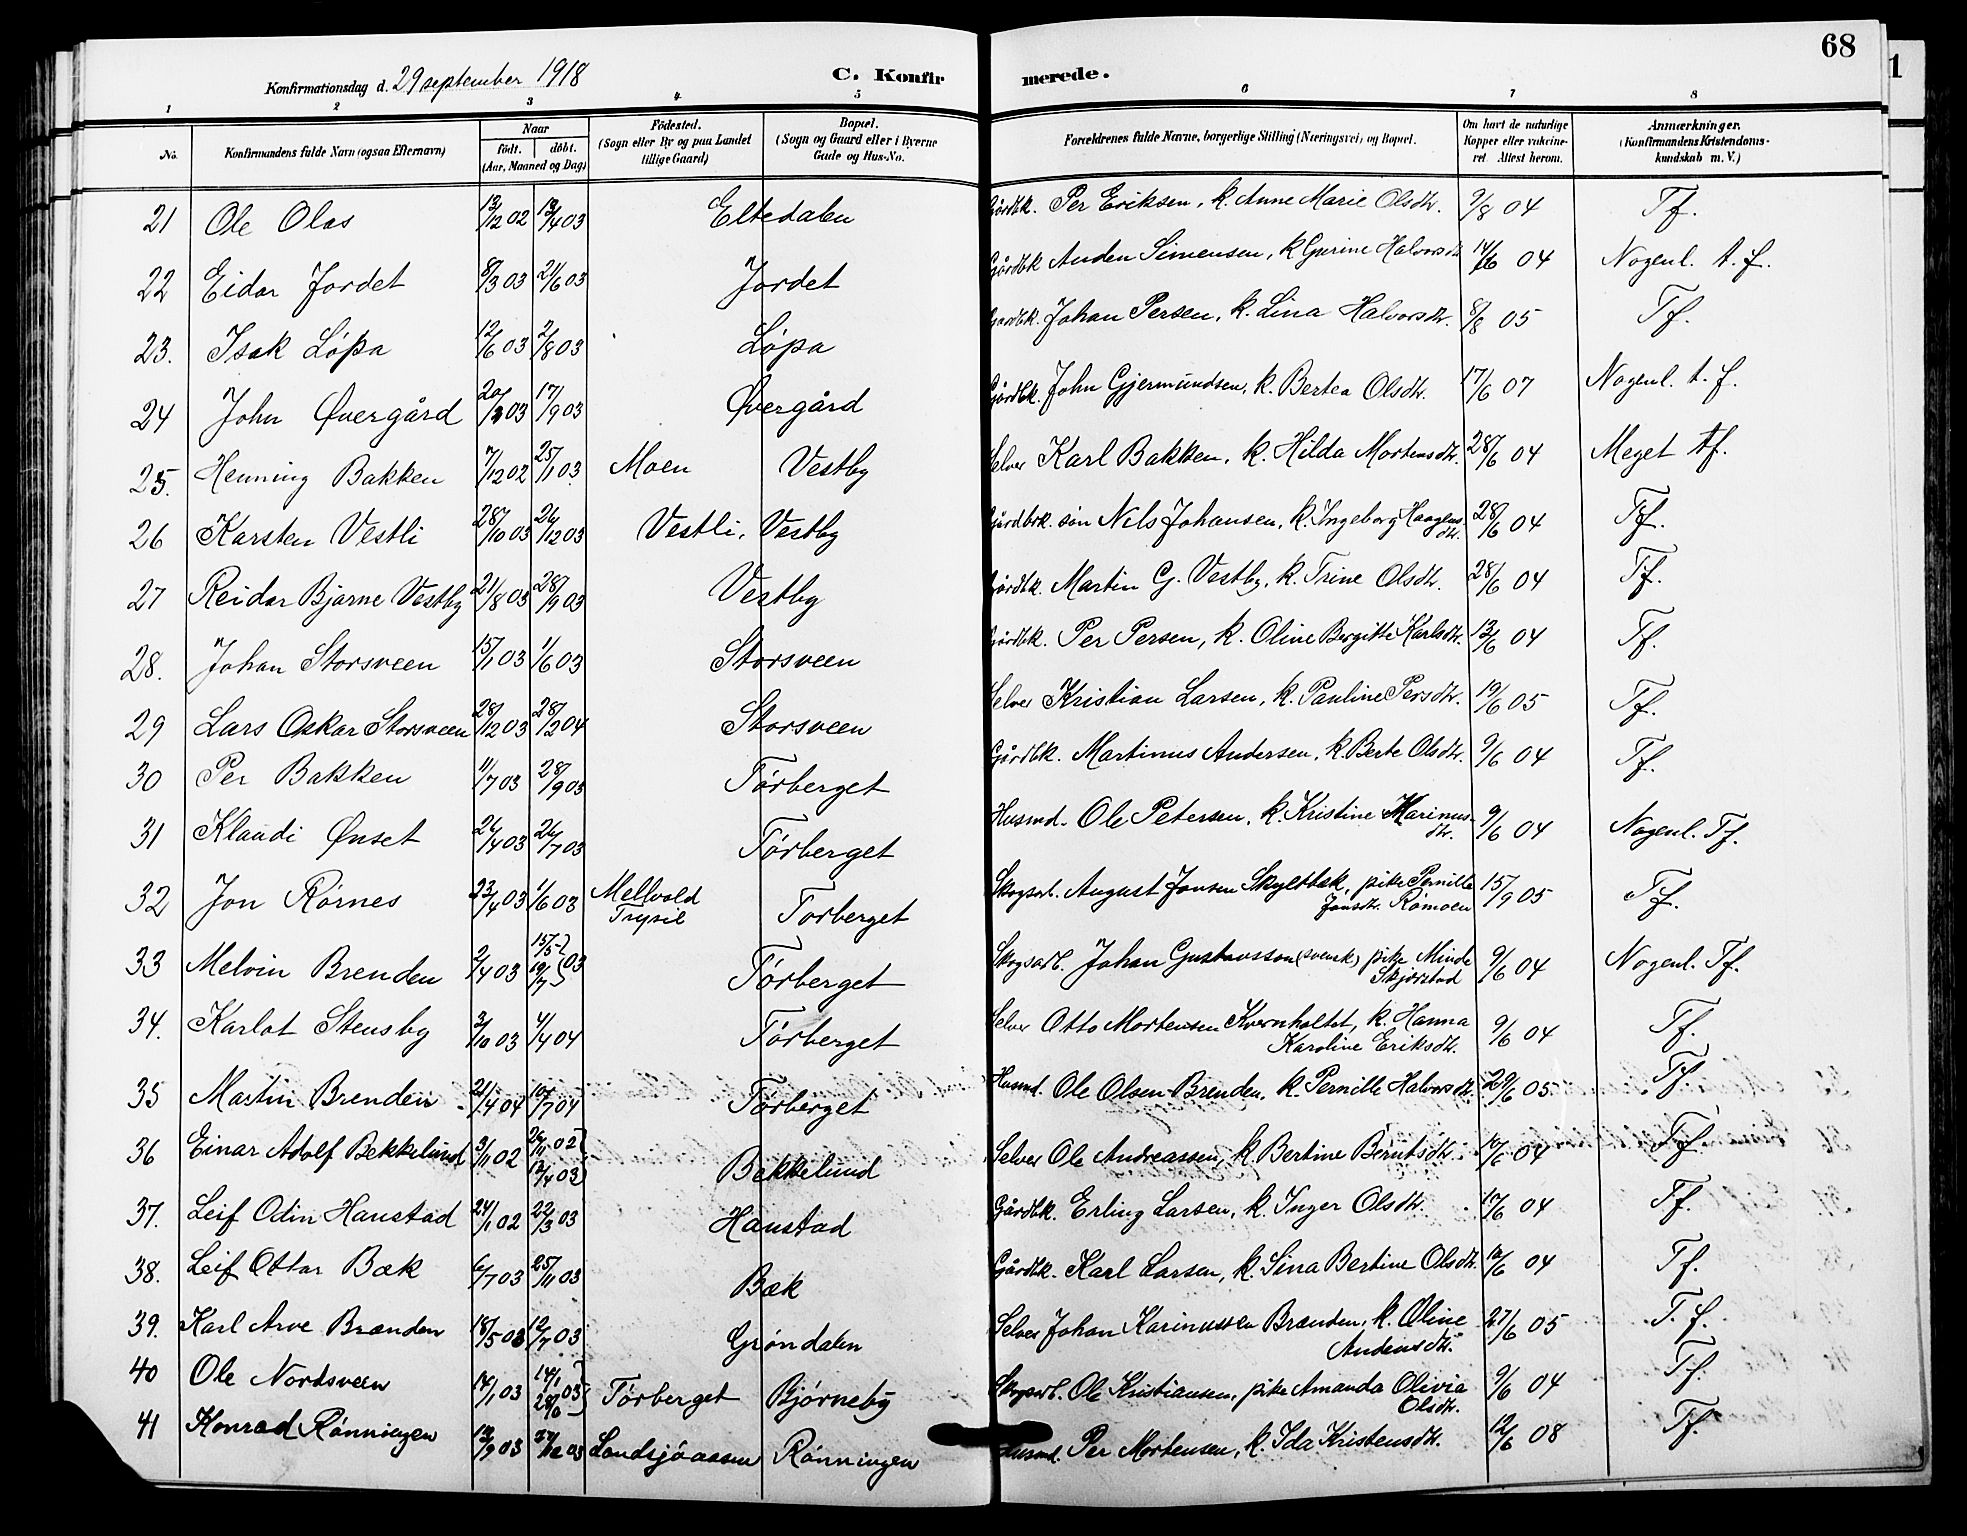 68
1
Konfirmationsdag d. 29 september 1918 C. Konfirmerede.
1 2 3 4 5 6 7 8
No. Konfirmandens fulde Navn (ogsaa Efternavn) Naar født. døbt. (Aar, Maaned og Dag) Fødested. (Sogn eller By og paa Landet tillige Gaard) Bopæl. (Sogn og Gaard eller i Byerne Gade og Hus-No. Forældrenes fulde Navne, borgerlige Stilling (Næringsvei) og Bopæl. Om havt de naturlige Kopper eller vakcineret Attest herom. Anmærkninger. (Konfirmandens Kristendomskundskab m. V.)
21 Ole Olas 13/12 02 13/4 03 Eltedalen Gårdbk. Per Eriksen, k. Anne Marie Olsdtr. 9/8 04 Tf.
22 Eidar Jordet 8/3 03 21/6 03 Jordet Gårdbk Anden Simensen, k Gurine Halvorsdtr 14/6 04 Nogenl. t. f.
23. Isak Løpa 12/6 03 2/8 03 Løpa Gårdbk. Johan Persen, k. Lina Halvorsdtr. 8/8 05 Tf.
24 John Øvergård 20/3 03 17/9 03 Øvergård Gårdbk. John Gjermundsen, k. Bertea Olsdtr. 17/6 07 Nogenl. t. f.
25. Henning Bakken 7/12 02 25/1 03 Moen Vestby Selver Karl Bakken, k. Hilda Mortensdtr. 28/6 04 Meget tf.
26 Karsten Vestli 28/10 03 26/12 03 Vestli, Vestby Gårdbrk. søn Nils Johansen, k. Ingeborg Haagensdtr. 28/6 04 Tf.
27 Reidar Bjarne Vestby 21/8 03 28/9 03 Vestby Gårdbk. Martin G. Vestby, k. Trine Olsdtr. 28/6 04 Tf.
28. Johan Storsveen 15/1 03 1/6 03 Storsveen Gårdbk. Per Persen, k. Oline Bergitte Karlsdtr. 13/6 04 Tf.
29 Lars Oskar Storsveen 28/12 03 28/2 04 Storsveen Selver Kristian Larsen, k. Pauline Persdtr. 19/6 05 Tf.
30 Per Bakken 11/7 03 28/9 03 Tørberget Gårdbk. Martinus Andersen, k. Berte Olsdtr. 9/6 04 Tf.
31 Klaudi Ønset 26/4 03 26/7 03 Tørberget Husmd. Ole Petersen, k. Kristine Marinusdtr. 9/6 04 Nogenl. Tf.
32 Jon Rørnes 23/4 03 1/6 03 Mellvold Trysil Tørberget Skogsarb. August Jonsen Skyltbæk, pike Pernille Jonsdtr. Römoen 15/9 05 Tf.
33 Melvin Brenden 2/4 03 15/5 19/7 } 03 Tørberget Skogsarb. Johan Gustavsson (svensk) pike Minda Skjærstad 9/6 04 Nogenl. Tf.
34. Karlot Stensby 3/10 03 4/4 04 Tørberget Selver Otto Mortensen Kvernholtet, k. Hanna Karoline Eriksdtr. 9/6 04 Tf.
35 Martin Brenden 21/4 04 10/7 04 Tørberget Husmd. Ole Olsen Brenden, k. Pernille Halvorsdtr. 29/6 05 Tf.
36 Einar Adolf Bekkelund 3/11 02 24/11 02 13/4 03 Bekkelund Selver Ole Andreassen, k. Bertine Berntsdtr. 10/6 04 Tf.
37. Leif Odin Hanstad 24/1 02 22/3 03 Hanstad Gårdbk. Erling Larsen, k. Inger Olsdtr. 17/6 04 Tf.
38. Leif Ottar Bæk 6/7 03 25/11 03 Bæk Gårdbk. Karl Larsen, k. Sina Bertine Olsdtr. 10/6 04 Tf.
39. Karl Arve Brænden 18/5 03 12/7 03 Grøndalen Selver Johan Karinussen Brænden, k. Oline Andersdtr. 27/6 05 T. f.
40 Ole Nordsveen 14/1 03 Tørberget Bjørneby Skogsarb. Ole Kristiansen, pike Amanda Olivia Olsdtr. 9/6 04 Tf.
41 Konrad Rønningen 12/9 03 Landsjøaasen Rønningen Husmd. Per Mortensen, k. Ida Kristensdtr. 12/6 08 Tf.